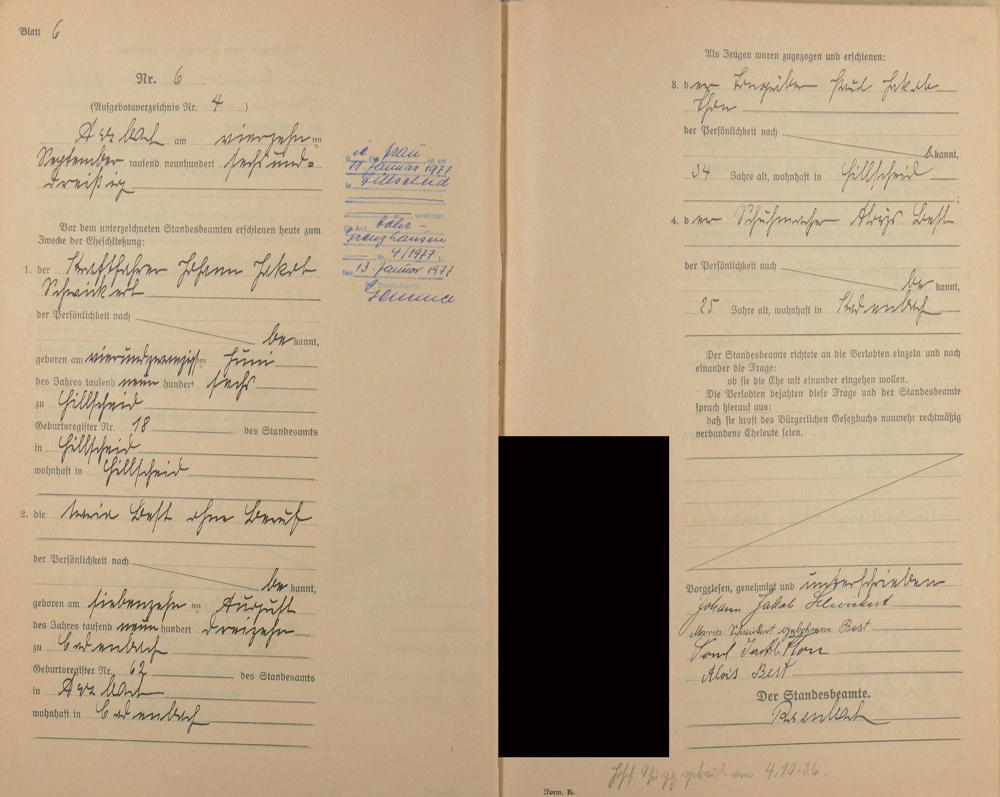 Blatt 6
Nr. 6
(Aufgebotsverzeichnis Nr. 4 )
Arzbach am vierzehnten
September tausend neunhundert sechsund=
dreißig
Vor dem unterzeichneten Standesbeamten erschienen heute zum
Zwecke der Eheschließung:
1. der Kraftfahrer Johann Jakob
Schwickert
der Persönlichkeit nach
be kannt,
geboren am vierundzwanzigsten Juni
des Jahres tausend neun hundert sechs
zu Hillscheid
Geburtsregister Nr. 18 des Standesamts
in Hillscheid
wohnhaft in Hillscheid
2. die Maria Best ohne Beruf
der Persönlichkeit nach
be kannt,
geboren am siebenzehn ten August
des Jahres tausend neun hundert dreizehn
zu Cadenbach
Geburtsregister Nr. 62 des Standesamts
in Arzbach
wohnhaft in Cadenbach
Frau ist am
11. Januar 1977
in Hillscheid
verstorben
Höhr-
Grenzhausen
Nr. 4/1977).
Den 13. Januar 1977
Der Standesbeamte
Als Zeugen waren zugezogen und erschienen:
3. der Jakob
der Persönlichkeit nach
b.kannt,
34 Jahre alt, wohnhaft in Hillscheid
4. der Schuhmacher Aloys Best
der Persönlichkeit nach
be kannt,
25 Jahre alt, wohnhaft in Kadenbach
Der Standesbeamte richtete an die Verlobten einzeln und nach
einander die Frage:
ob sie die Ehe mit einander eingehen wollen.
Die Verlobten bejahten diese Frage und der Standesbeamte
sprach hierauf aus:
daß sie kraft des Bürgerlichen Gesetzbuchs nunmehr rechtmäßig
verbundene Eheleute seien.
Vorgelesen, genehmigt und unterschrieben
Johann Jakob Schwickert
Maria Schwickert geborene Best
Jakob
Alois Best
Der Standesbeamte.
4.10.36.
Form. B.